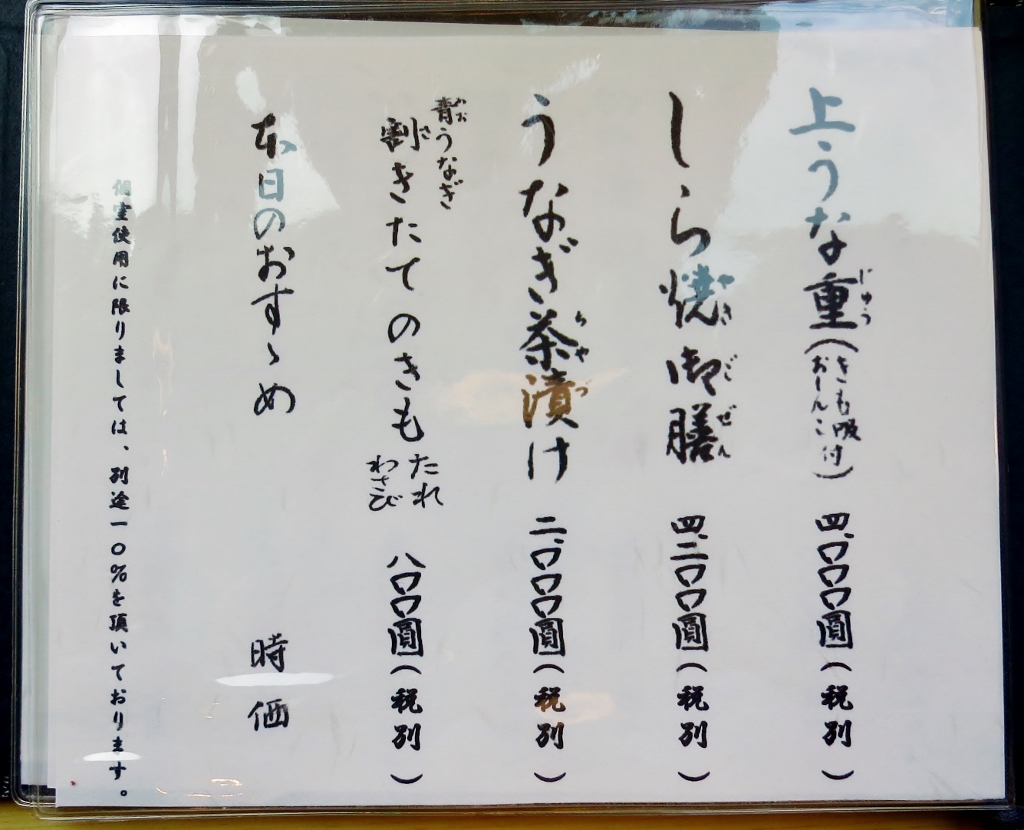 上うな重(きも吸付 おしんこ) 四、〇〇〇圓(税別)
じゅう
しら焼御膳 四、二〇〇圓(税別)
やき ごぜん
うなぎ茶漬け 二、〇〇〇圓(税別)
ちゃづ
青うなぎ
あお
割きたてのきも たれ わさび 八〇〇圓(税別)
さ
本日のおすゝめ 時価
個室使用に限りましては、別途一〇%を頂いております。